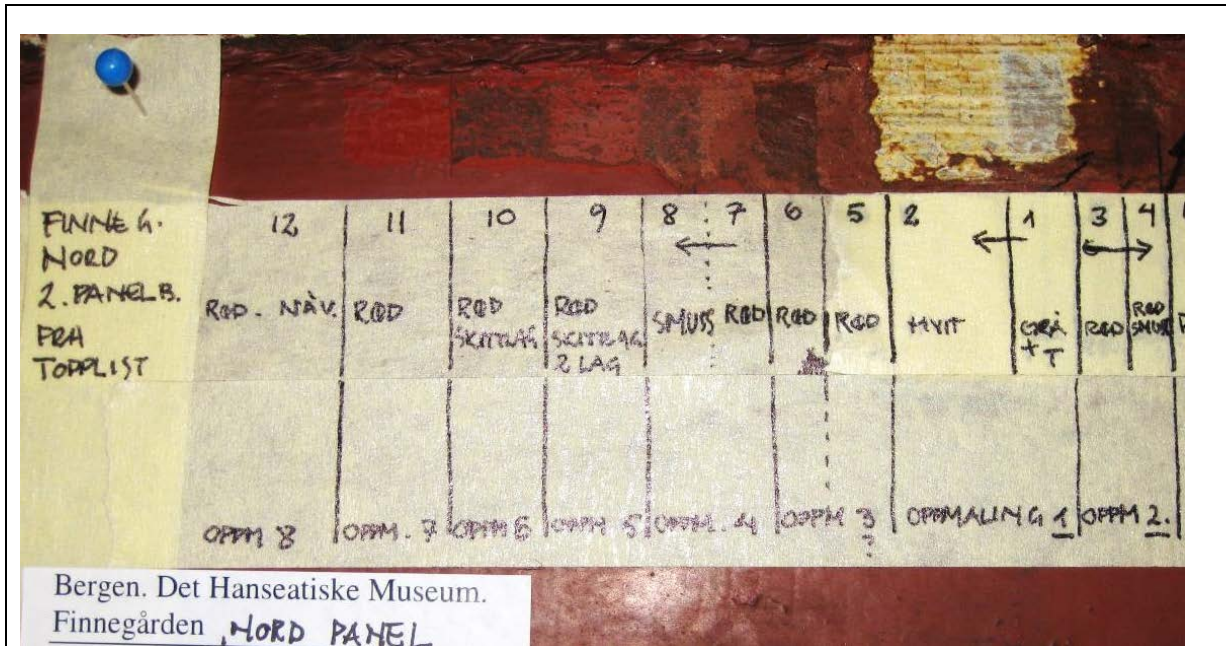 FINNEG.
NORD
2. PANELB.
FRA
TOPPLIST
12 11 10 9 8 7 6 5 2 1 3 4
RØD. NÅV. RØD RØD SKITTLAG RØD SKITTLAG 2 LAG SMUSS RØD RØD RØD HVIT GRÅ + T RØD RØD SMUSS
OPPM 8 OPPM. 7 OPPM 6 OPPM 5 OPPM. 4 OPPM 3 ? OPPMALING 1 OPPM 2.
Bergen. Det Hanseatiske Museum.
Finnegården, NORD PANEL